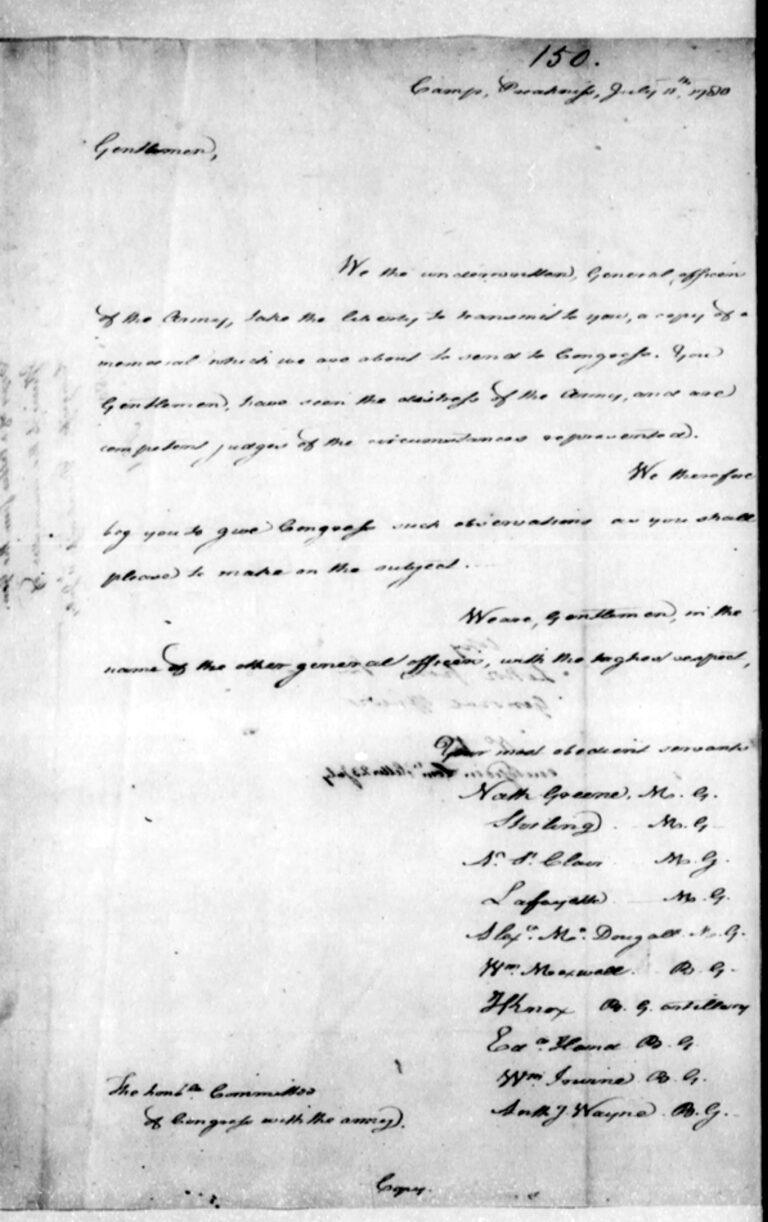 150.
Camp, Preakness, July 11th. 1780
Gentlemen,
We the underwritten, General officers
of the Army, take the liberty to transmit to you, a copy of a
memorial which we are about to send to Congress. You
Gentlemen, have seen the distress of the Army, and are
competent judges of the circumstances represented.
We therefore
beg you to give Congress such observations as you shall
please to make on the subject.
We are, Gentlemen, in the
name of the other general officers, with the highest respect,
Your most obedient servants
Nath Greene. M. G.
Sterling. M. G
Ar. St. Clair M. G.
Lafayette M. G.
Alexr. Mc. Dougall M. G.
Wm. Maxwell. B. G.
HKnox B. G. artillery
Edd. Hand B. G
Wm Irvine B. G.
Anthy Wayne. B. G.
The honble. Committee
of Congress with the army.
Copy.